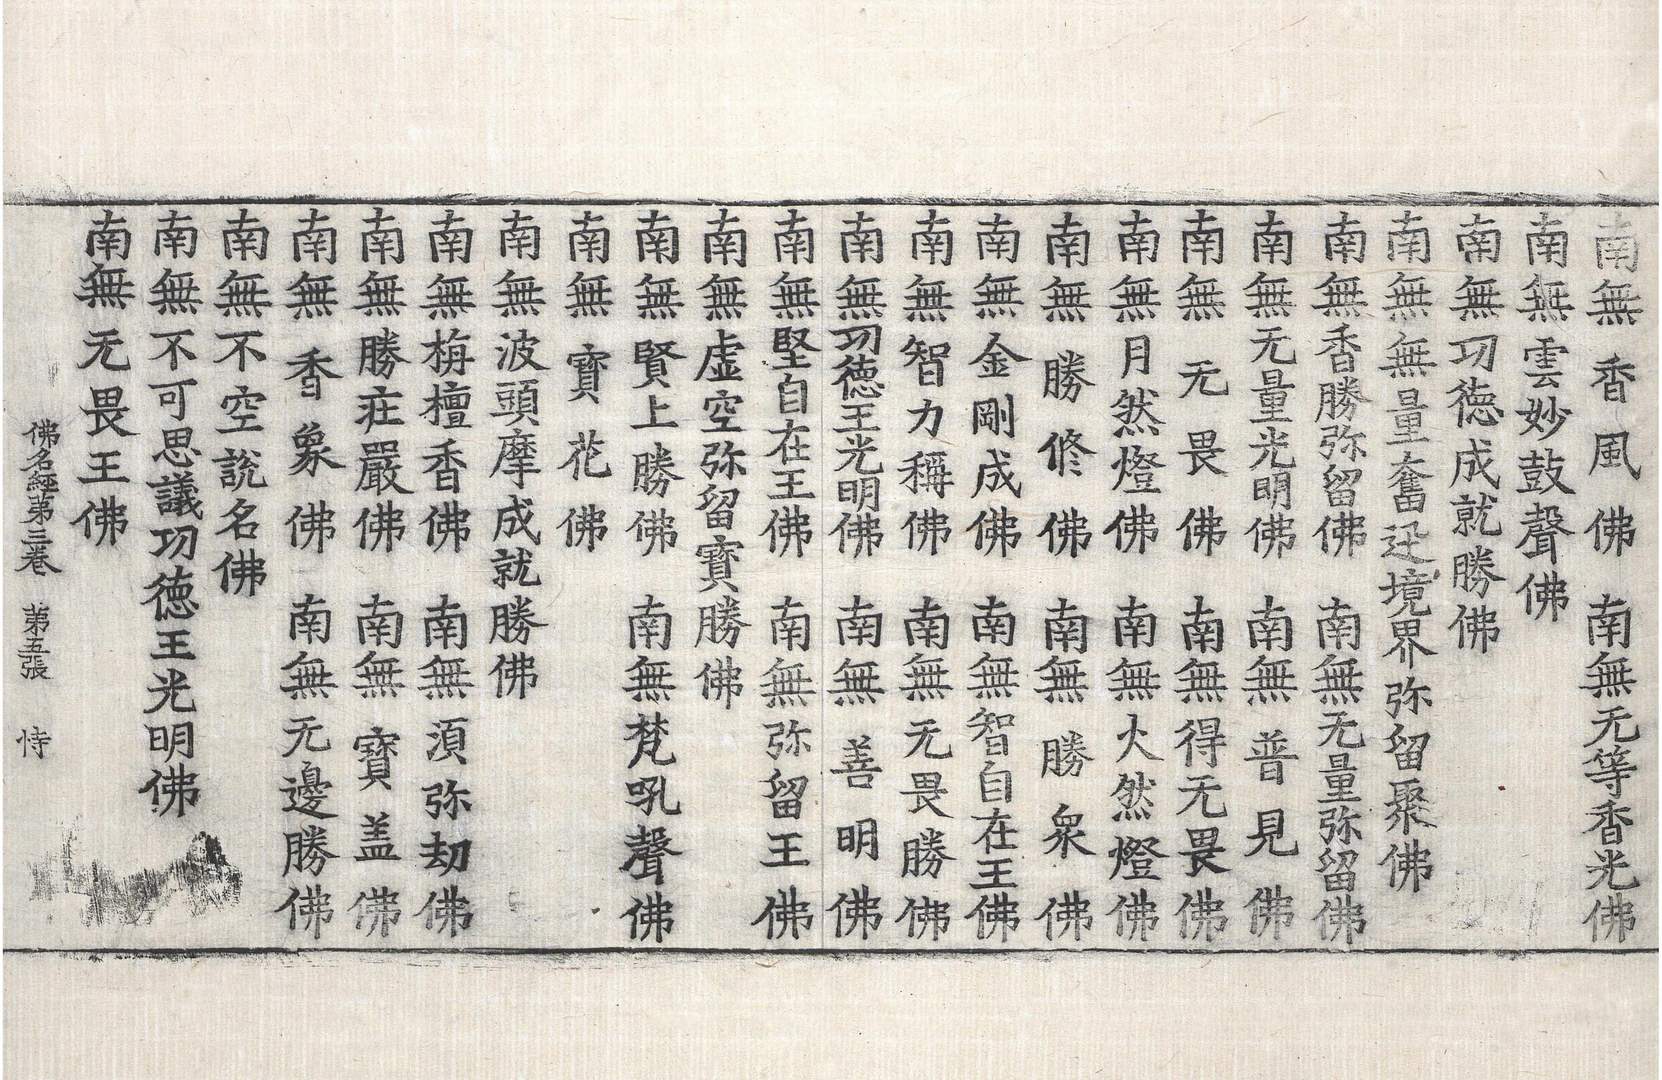 南無香風佛　南無无等香光佛
南無雲妙鼓聲佛
南無功德成就勝佛
南無無量奮迅境界弥留聚佛
南無香勝弥留佛　南無无量弥留佛
南無无量光明佛　南無普見佛
南無无畏佛　南無得无畏佛
南無月然燈佛　南無火然燈佛
南無勝修佛　南無勝衆佛
南無金剛成佛　南無智自在王佛
南無智力稱佛　南無无畏勝佛
南無功德王光明佛　南無善明佛
南無堅自在王佛　南無弥留王佛
南無虛空弥留寶勝佛
南無賢上勝佛　南無梵吼聲佛
南無寶花佛
南無波頭摩成就勝佛
南無栴檀香佛　南無湏弥劫佛
南無勝庄嚴佛　南無寶盖佛
南無香象佛　南無无邊勝佛
南無不空說名佛
南無不可思議功德王光明佛
南無无畏王佛
佛名經第三卷　第五張　恃